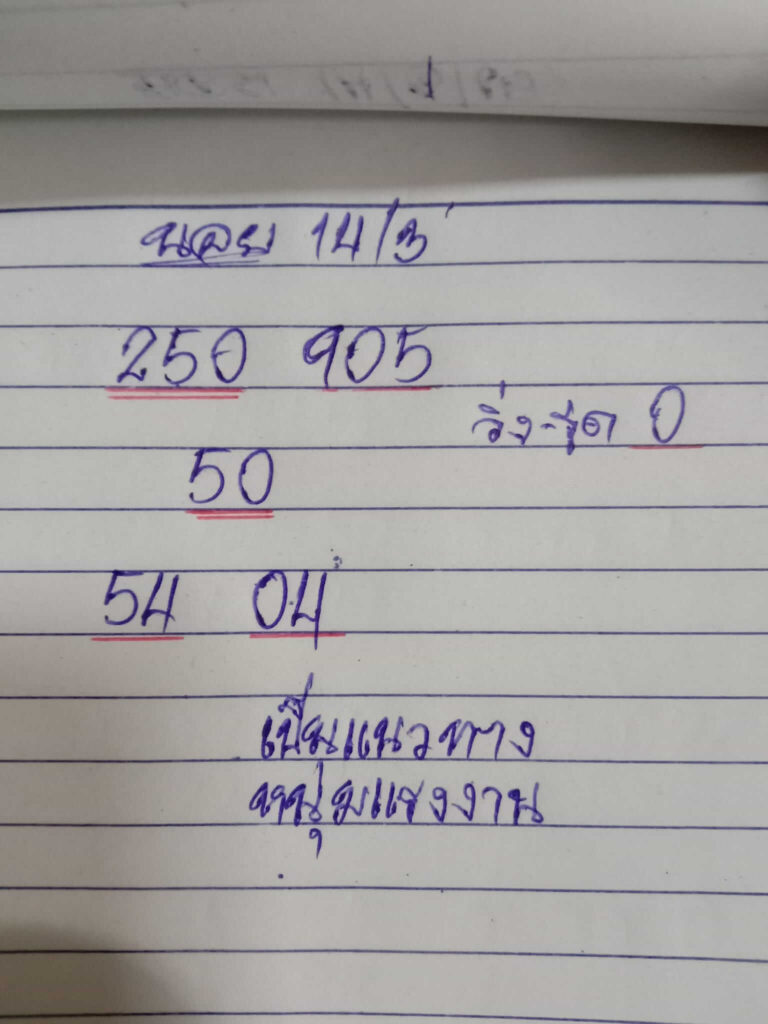 นอย 14/3
250 905
วิ่ง-รูด 0
50
54 04
เป็นแนวทาง
หนุ่มแรงงาน